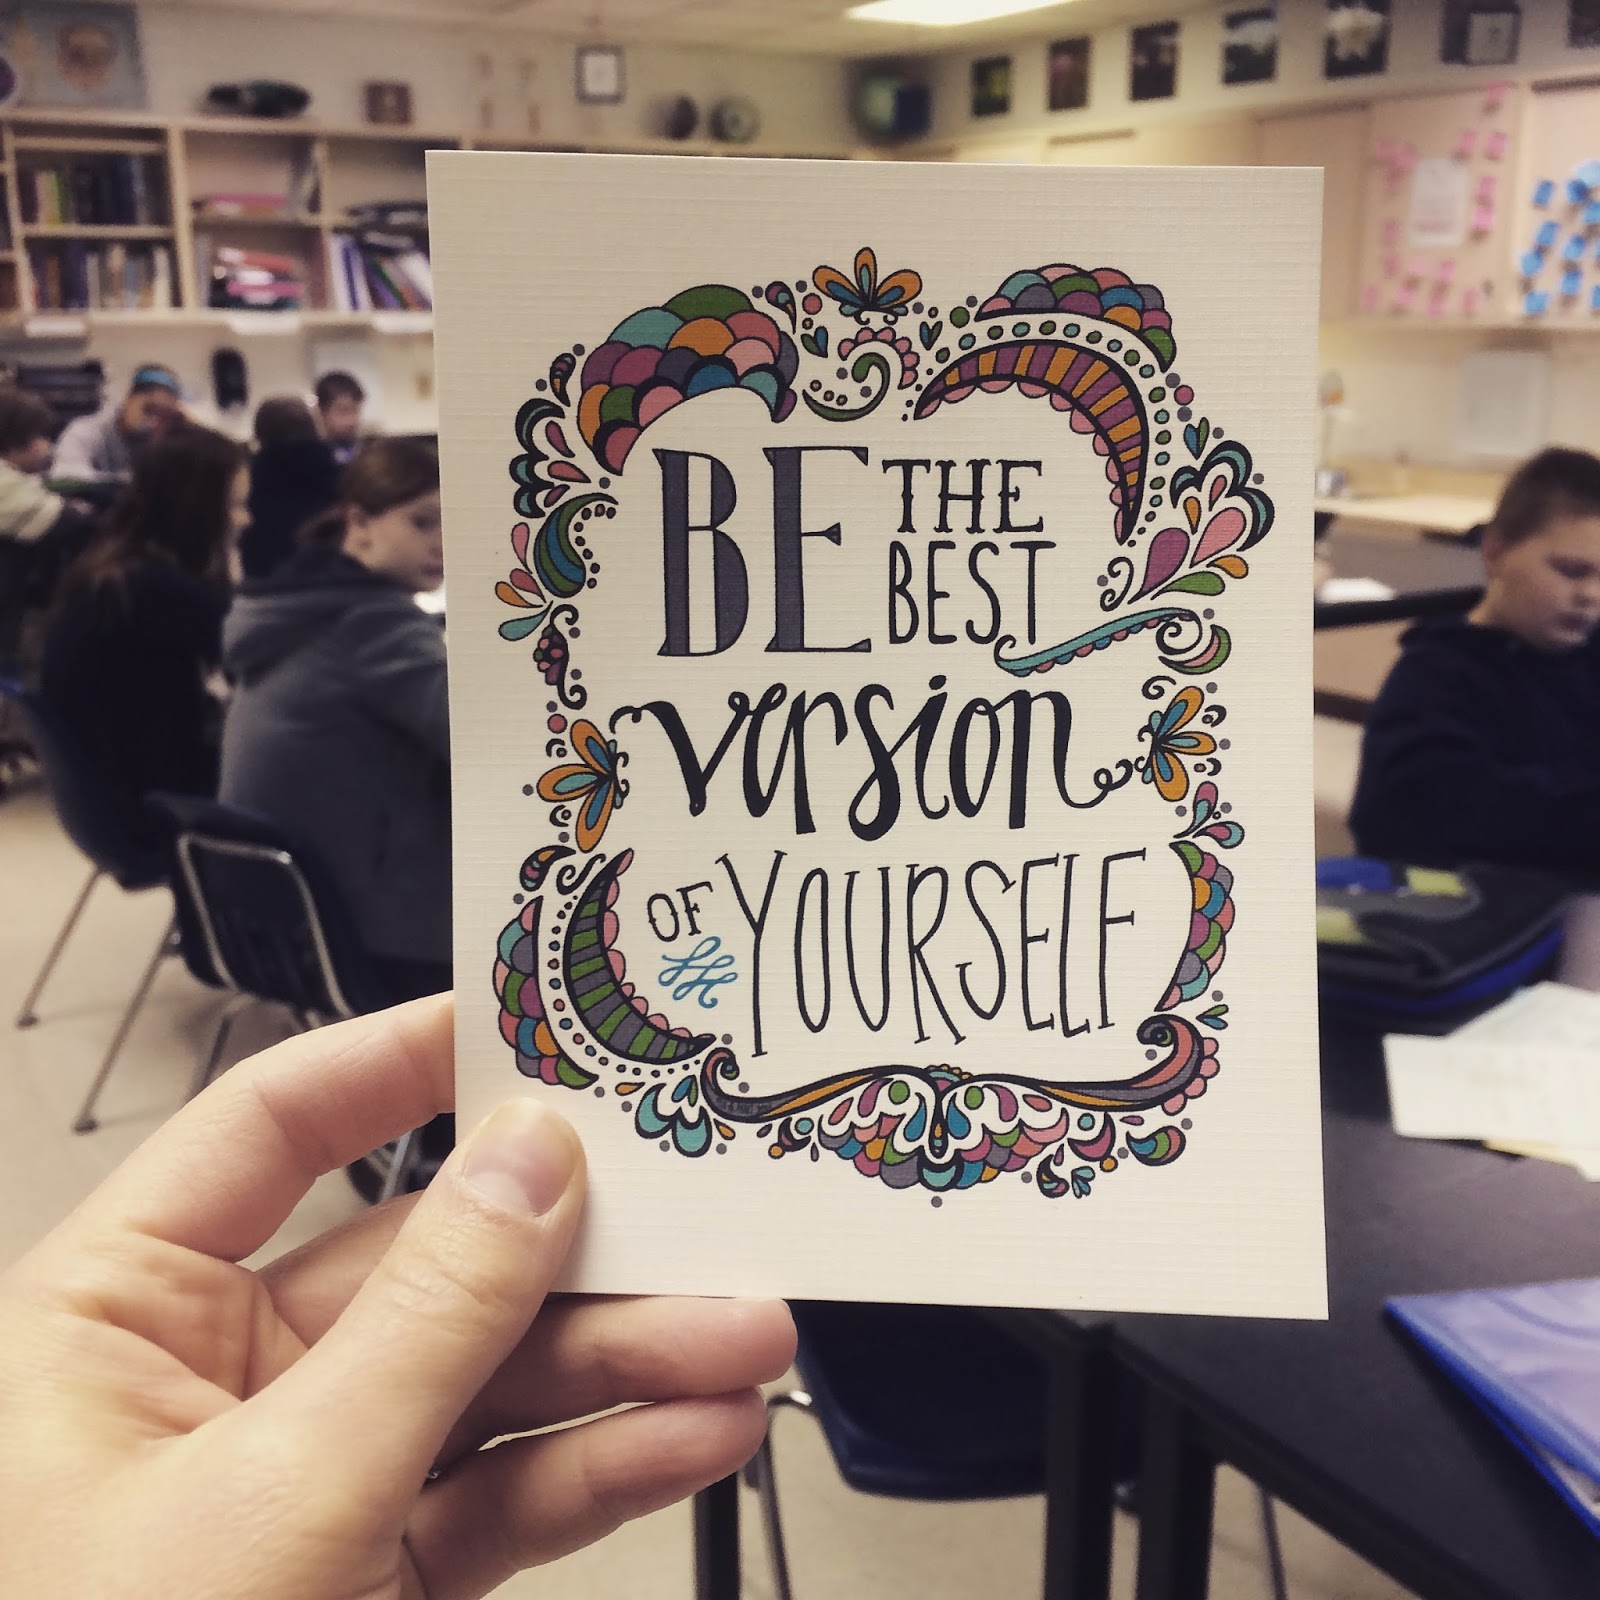 BE THE
BEST
version
OF YOURSELF